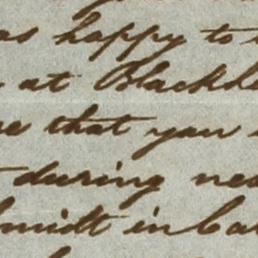 as happy to
at Blackh
e that you
during nea
hmidt in Ca